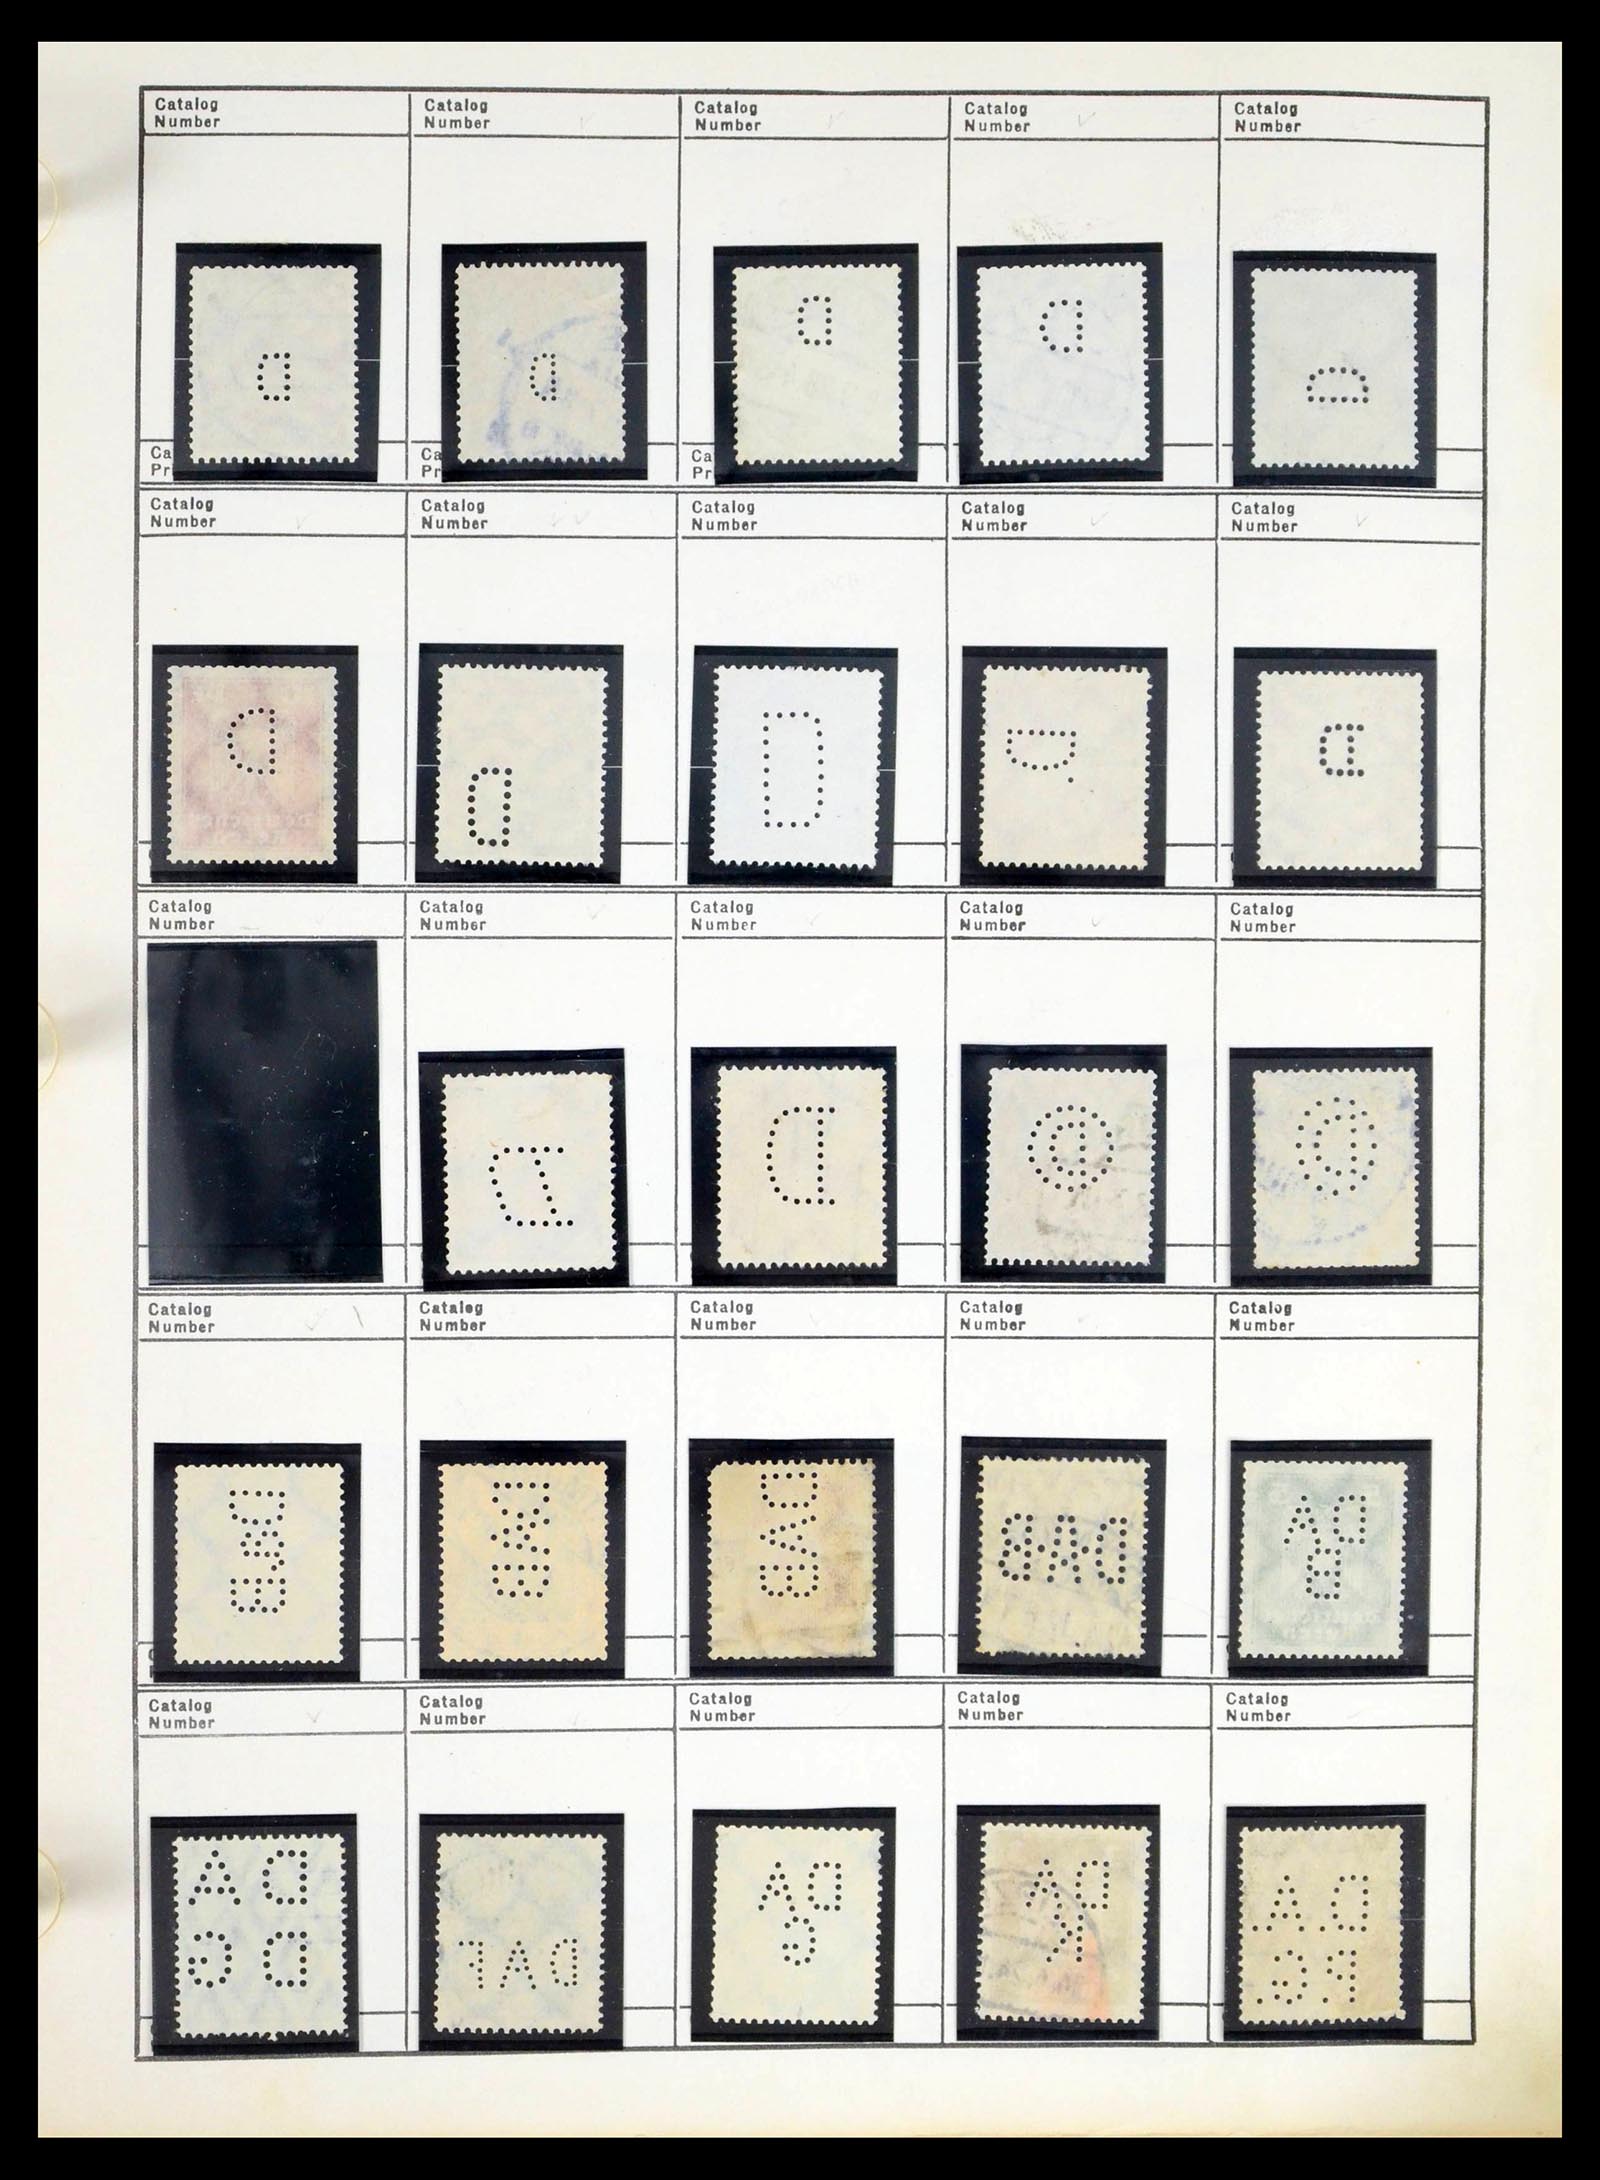 Catalog Number
Catalog Number
Catalog Number
Catalog Number
Catalog Number
D
D
D
D
D
Ca
Pr
Ca
Pr
Ca
Pr
Catalog Number
Catalog Number
Catalog Number
Catalog Number
Catalog Number
D
D
D
D.
D
Catalog Number
Catalog Number
Catalog Number
Catalog Number
Catalog Number
D
D
D
D
Catalog Number
Catalog Number
Catalog Number
Catalog Number
Catalog Number
DAB
DAB
DAB
DAB
DA
B
Catalog Number
Catalog Number
Catalog Number
Catalog Number
Catalog Number
DA
DG
DAF
DA
G
DA
K
D.A.
P.G.